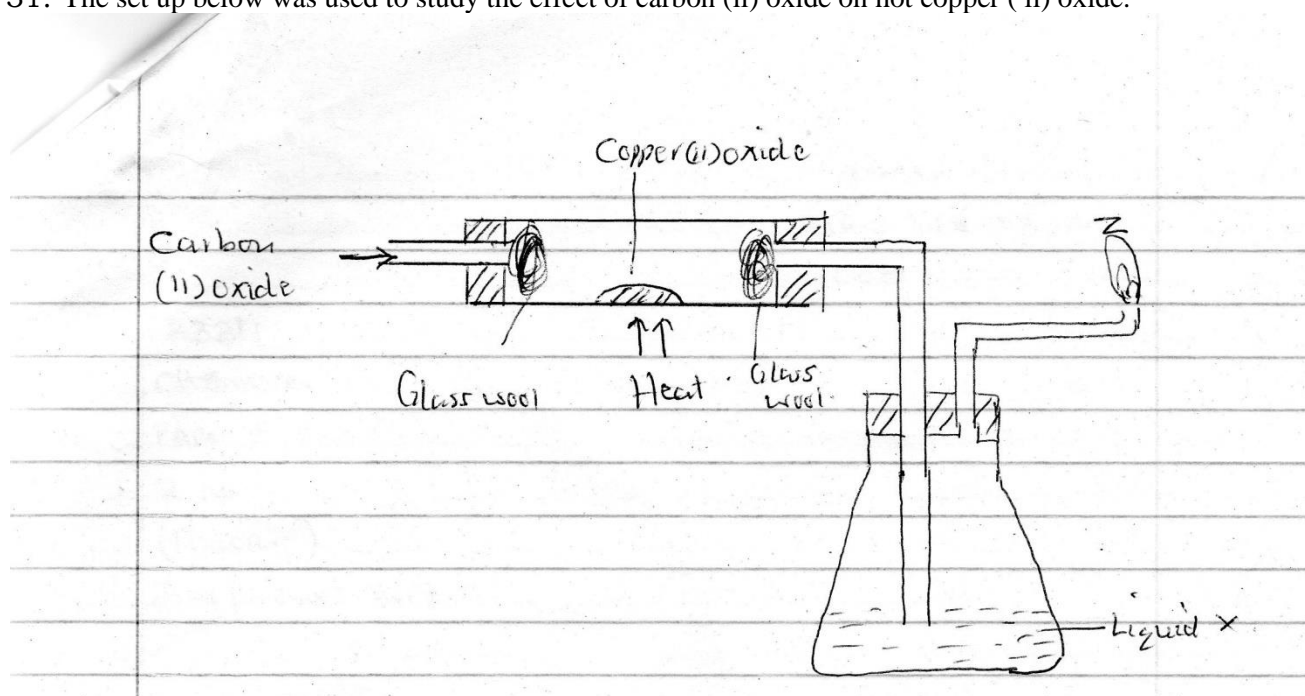 31. The set up below was used to study the effect of carbon (ii) oxide on hot copper ( ii) oxide.
Copper(ii)oxide
Carbon
(ii) oxide
Z
Glass wool
Heat
Glass
wool
Liquid X